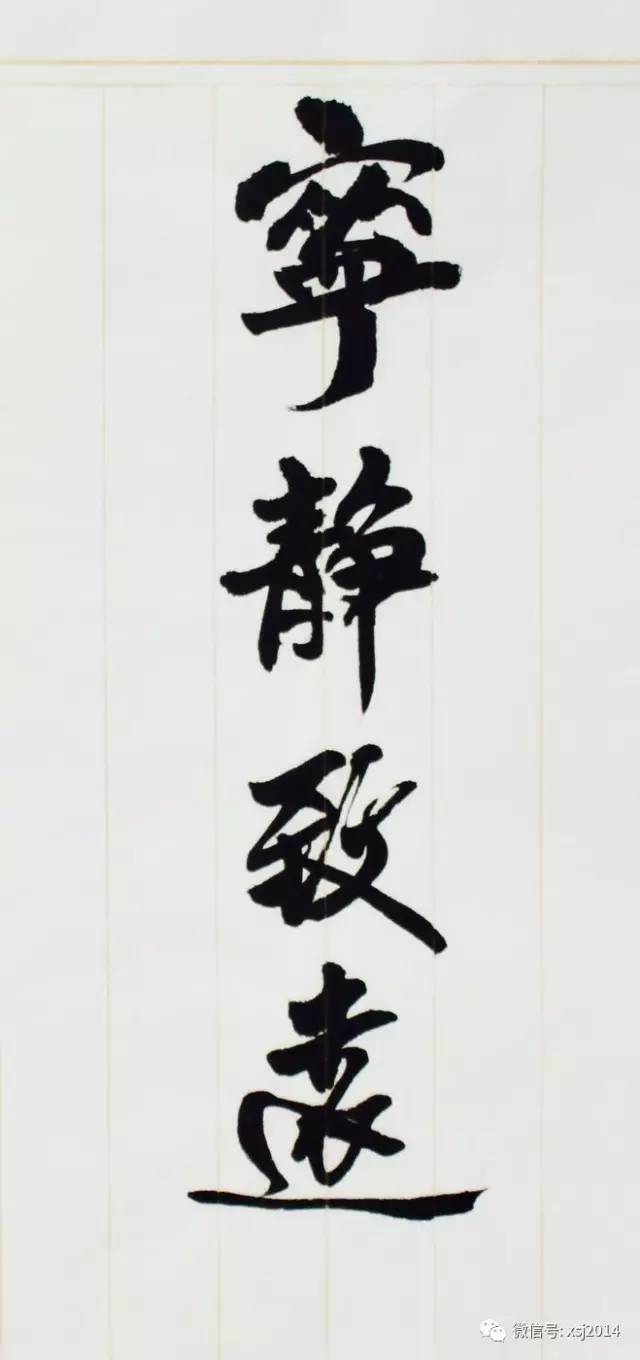 寧靜致遠
微信号: xsj2014